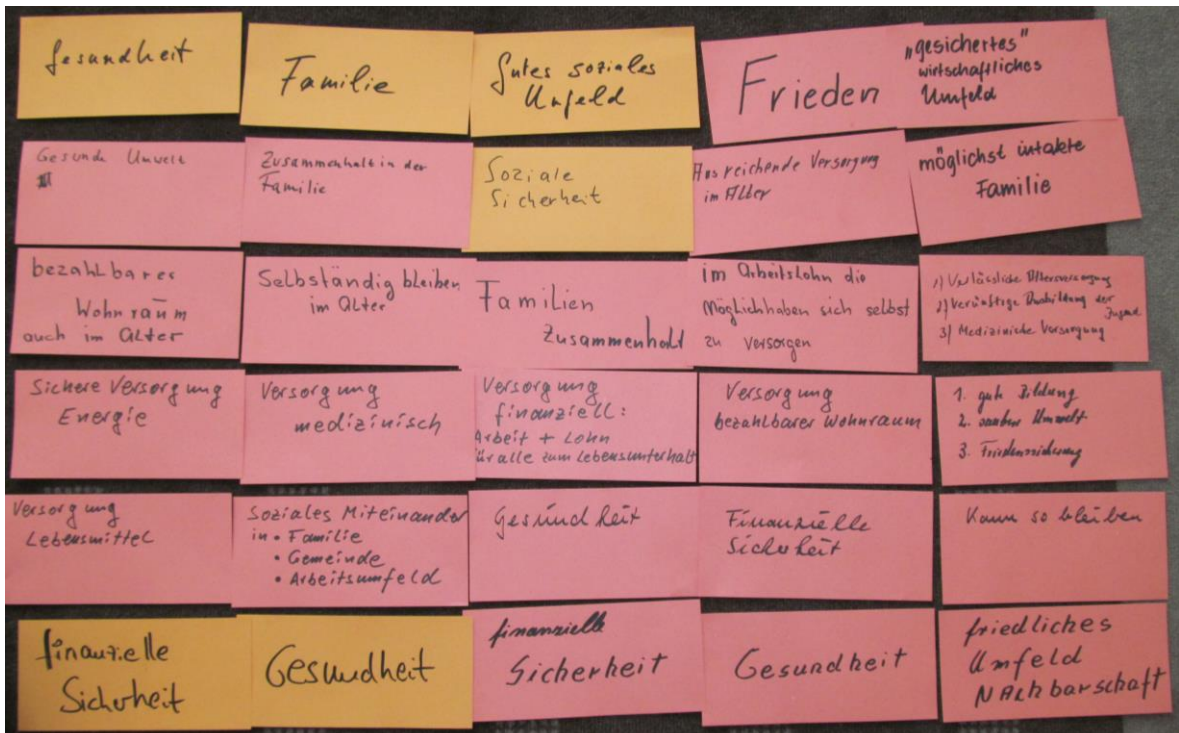 Gesundheit
Familie
Gutes soziales
Umfeld
Frieden
„gesichertes"
wirtschaftliches
Umfeld
Gesunde Umwelt
Zusammenhalt in der
Familie
Soziale
Sicherheit
Ausreichende Versorgung
im Alter
möglichst intakte
Familie
bezahlbarer
Wohnraum
auch im Alter
Selbständig bleiben
im Alter
Familien
Zusammenhalt
im Arbeitslohn die
Möglichhaben sich selbst
zu versorgen
1) Verlässliche Altersversorgung
2) Vernünftige Ausbildung der
Jugend
3) Medizinische Versorgung
Sichere Versorgung
Energie
Versorgung
medizinisch
Versorgung
finanziell:
Arbeit + Lohn
für alle zum Lebensunterhalt
Versorgung
bezahlbarer Wohnraum
1. gute Bildung
2. saubere Umwelt
3. Friedenssicherung
Versorgung
Lebensmittel
Soziales Miteinander
in • Familie
• Gemeinde
• Arbeitsumfeld
Gesundheit
Finanzielle
Sicherheit
Kann so bleiben
finanzielle
Sicherheit
Gesundheit
finanzielle
Sicherheit
Gesundheit
friedliches
Umfeld
NAchbarschaft